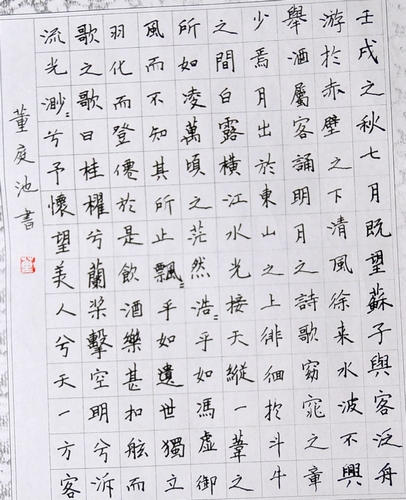 壬戌之秋七月既望蘇子與客泛舟
游於赤壁之下清風徐来水波不興
舉酒屬客誦明月之詩歌窈窕之章
少焉月出於東山之上徘徊扵斗牛
之間白露橫江水光接天縱一葦之
所如凌萬頃之茫然浩=乎如馮虛御
風而不知其所止飄=乎如遺世獨立
羽化而登僊於是飲酒樂甚扣舷而
歌之歌曰桂櫂兮蘭桨擊空明兮泝
流光渺=兮予懷望美人兮天一方客
董庭池書